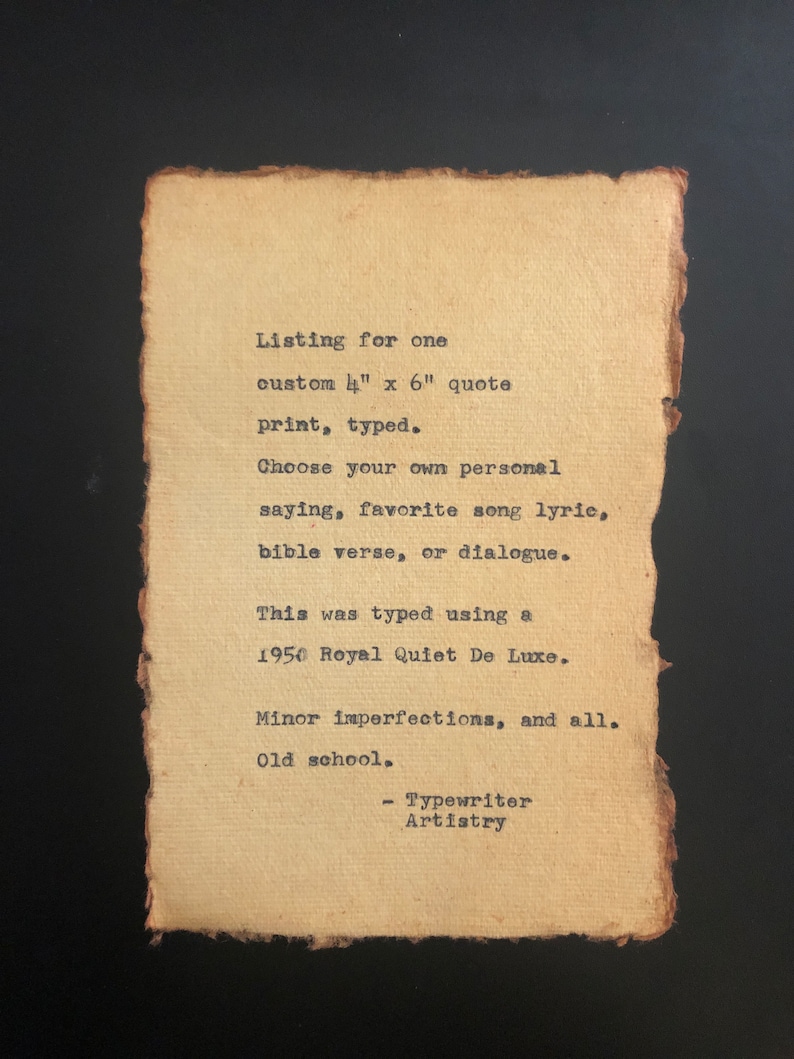 Listing for one
custom 4" x 6" quote
print, typed.
Choose your own personal
saying, favorite song lyric,
bible verse, or dialogue.
This was typed using a
1950 Royal Quiet De Luxe.
Minor imperfections, and all.
Old school.
- Typewriter
Artistry